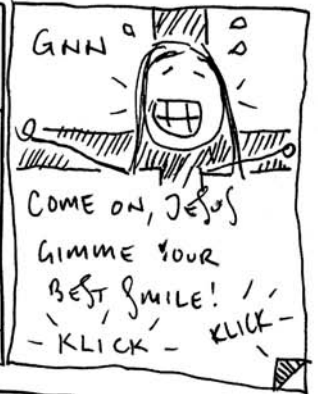 GNN
COME ON, JESUS
GIMME YOUR
BEST SMILE!
KLICK
KLICK